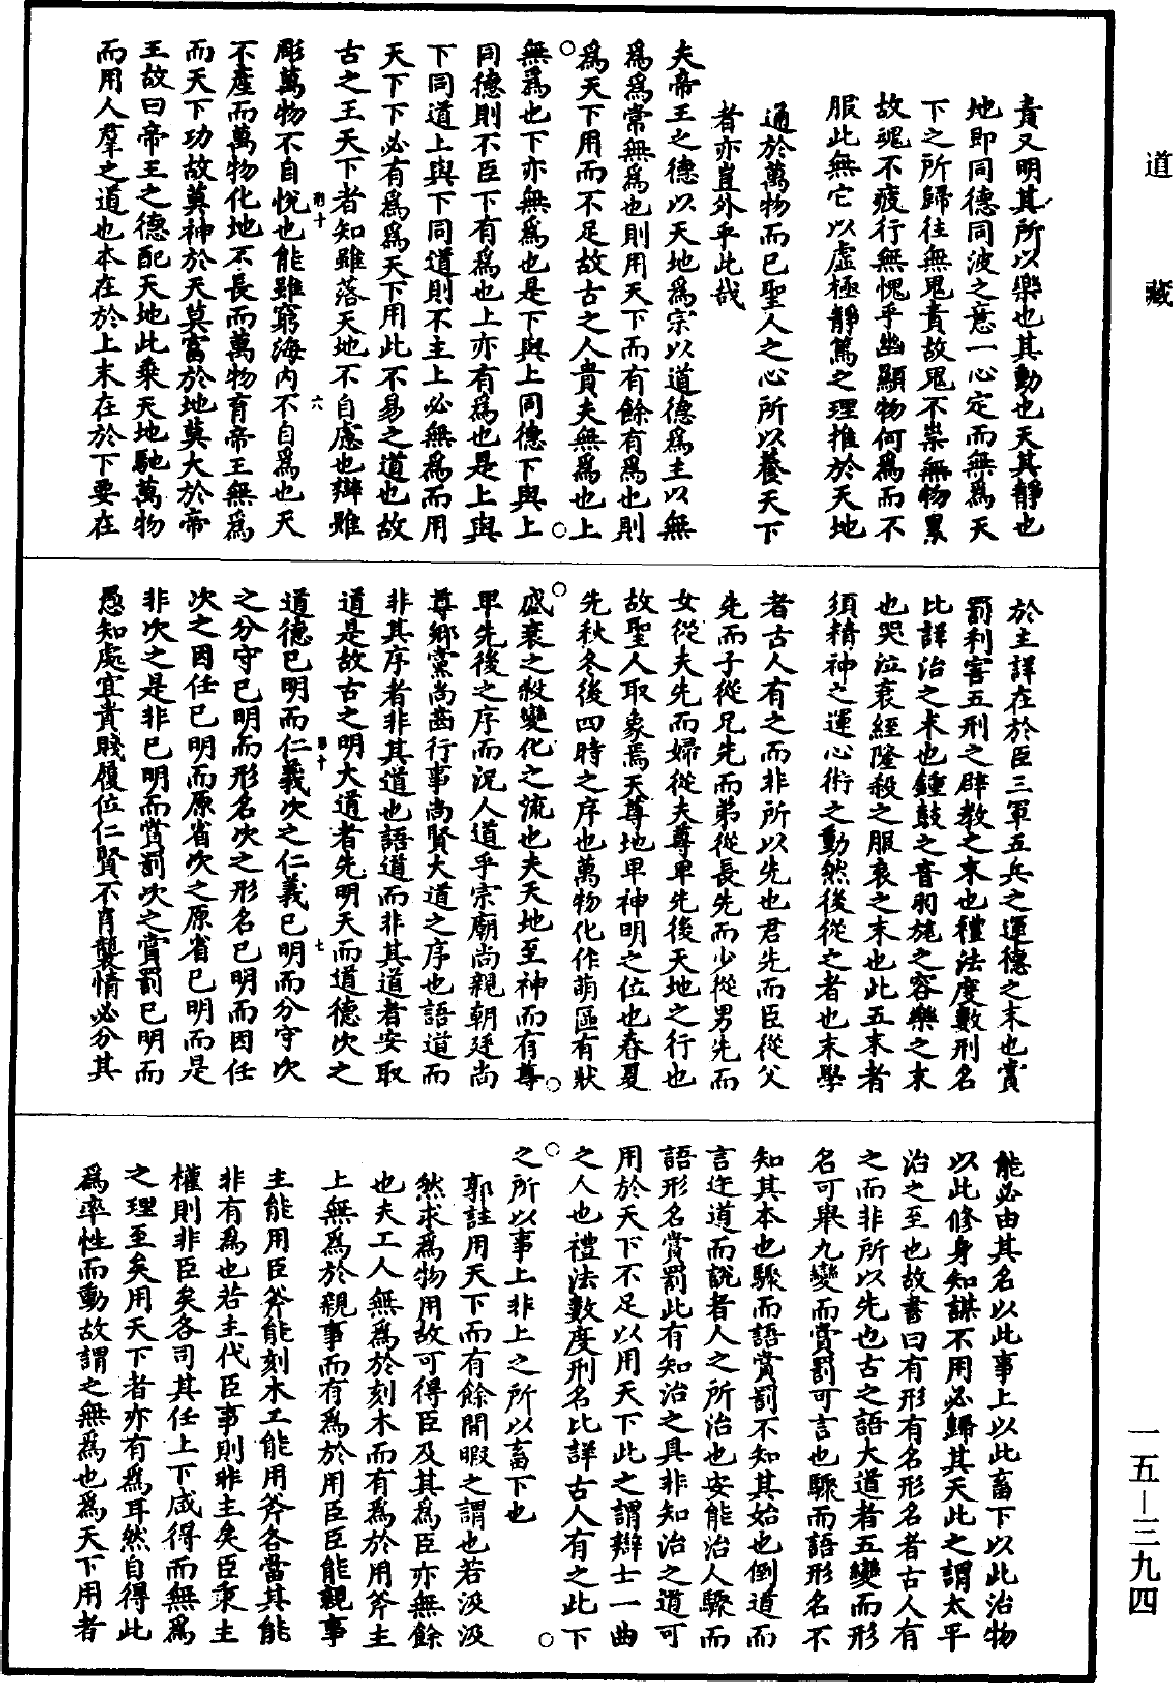 道藏
責又明其所以樂也其動也天其靜也
地即同德同波之意一心定而無為天
下之所歸往無鬼責故鬼不祟無物累
故魂不疲行無愧乎幽顯物何為而不
服此無它以虛極靜篤之理推於天地
通於萬物而已聖人之心所以養天下
者亦豈外乎此哉
夫帝王之德以天地為宗以道德為主以無
為為常無為也則用天下而有餘有為也則
為天下用而不足故古之人貴夫無為也上
無為也下亦無為也是下與上同德下與上
同德則不臣下有為也上亦有為也是上與
下同道上與下同道則不主上必無為而用
天下下必有為為天下用此不易之道也故
古之王天下者知雖落天地不自慮也辯雖
彫萬物不自悅也能雖窮海內不自為也天
不產而萬物化地不長而萬物育帝王無為
而天下功故莫神於天莫富於地莫大於帝
王故曰帝王之德配天地此乘天地馳萬物
而用人羣之道也本在於上末在於下要在
於主詳在於臣三軍五兵之運德之末也賞
罰利害五刑之辟教之末也禮法度數刑名
比詳治之末也鍾鼓之音羽旄之容樂之末
也哭泣衰絰隆殺之服哀之末也此五末者
須精神之運心術之動然後從之者也末學
者古人有之而非所以先也君先而臣從父
先而子從兄先而弟從長先而少從男先而
女從夫先而婦從夫尊卑先後天地之行也
故聖人取象焉天尊地卑神明之位也春夏
先秋冬後四時之序也萬物化作萌區有狀
盛衰之殺變化之流也夫天地至神而有尊
卑先後之序而況人道乎宗廟尚親朝廷尚
尊鄉黨尚齒行事尚賢大道之序也語道而
非其序者非其道也語道而非其道者安取
道是故古之明大道者先明天而道德次之
道德已明而仁義次之仁義已明而分守次
之分守已明而形名次之形名已明而因任
次之因任已明而原省次之原省已明而是
非次之是非已明而賞罰次之賞罰已明而
愚知處宜貴賤履位仁賢不肖襲情必分其
能必由其名以此事上以此畜下以此治物
以此修身知謀不用必歸其天此之謂太平
治之至也故書曰有形有名形名者古人有
之而非所以先也古之語大道者五變而形
名可舉九變而賞罰可言也驟而語形名不
知其本也驟而語賞罰不知其始也倒道而
言迕道而說者人之所治也安能治人驟而
語形名賞罰此有知治之具非知治之道可
用於天下不足以用天下此之謂辯士一曲
之人也禮法數度刑名比詳古人有之此下
之所以事上非上之所以畜下也
郭註用天下而有餘閒暇之謂也若汲汲
然求為物用故可得臣及其為臣亦無餘
也夫工人無為於刻木而有為於用斧主
上無為於親事而有為於用臣臣能親事
主能用臣斧能刻木工能用斧各當其能
非有為也若主代臣事則非主矣臣秉主
權則非臣矣各司其任上下咸得而無為
之理至矣用天下者亦有為耳然自得此
為率性而動故謂之無為也為天下用者
一五—三九四